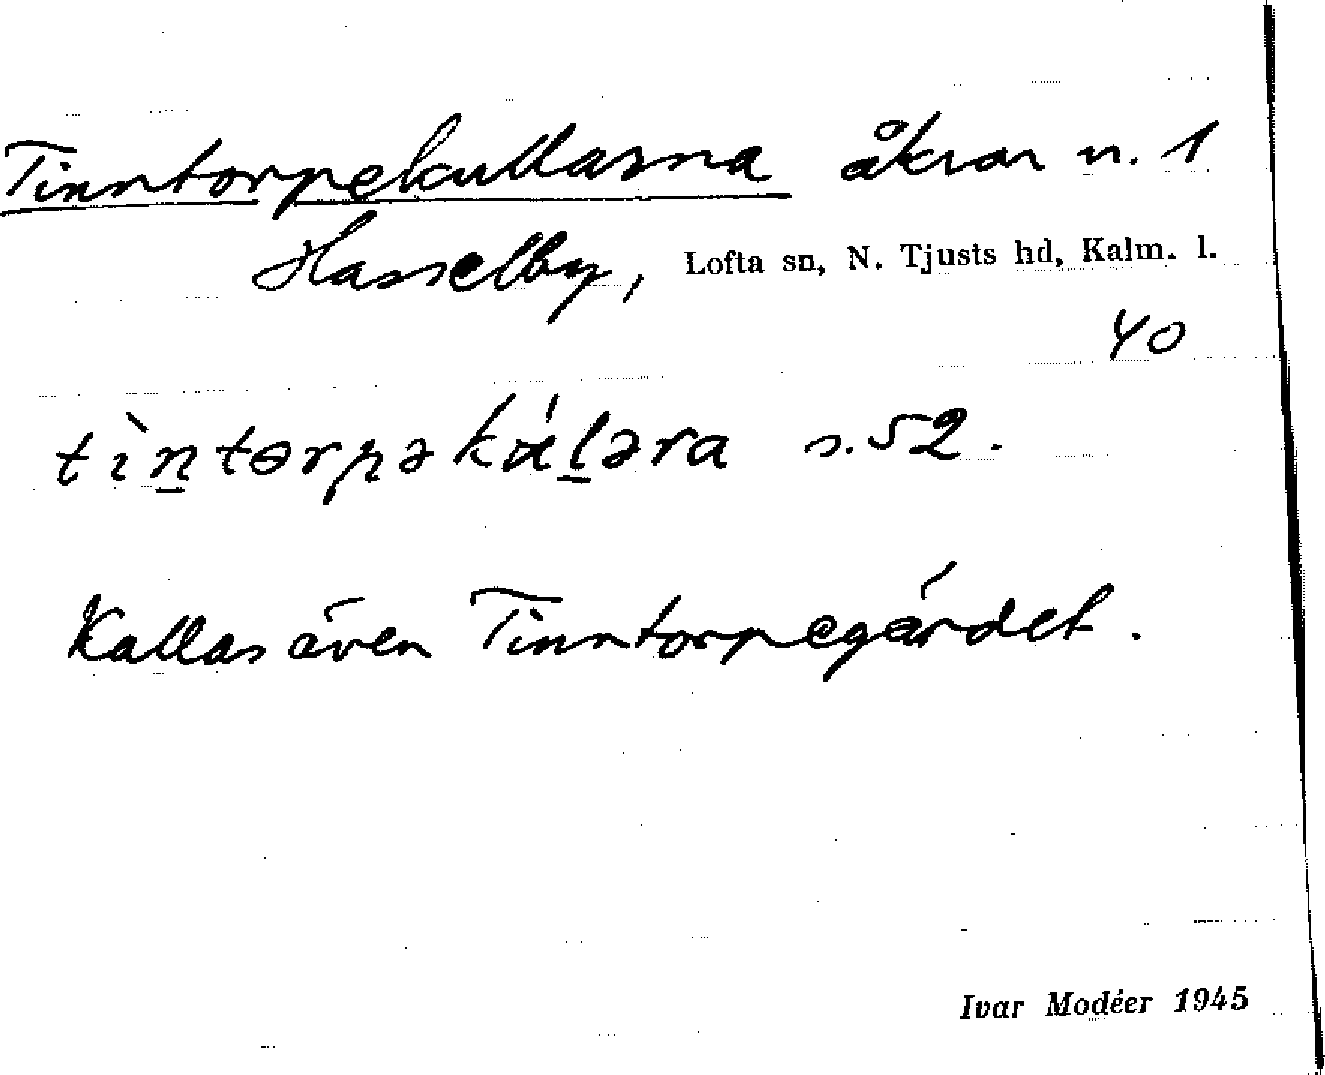 Tinntorpekullarna åkrar n. 1
Hasselby, Lofta sn, N. Tjusts hd, Kalm. l.
40
tìn̲tɵrpəkúl̲əra s. 52.
Kallas även Tinntorpegärdet.
Ivar Modéer 1945